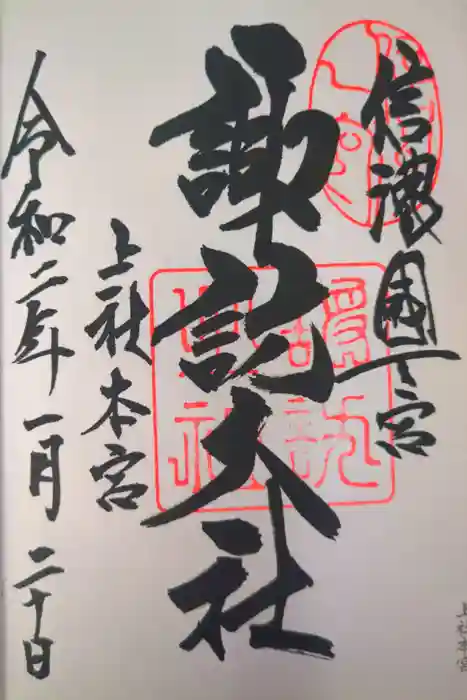 信濃國一之宮
諏訪大社
上社本宮
令和二年一月二十日